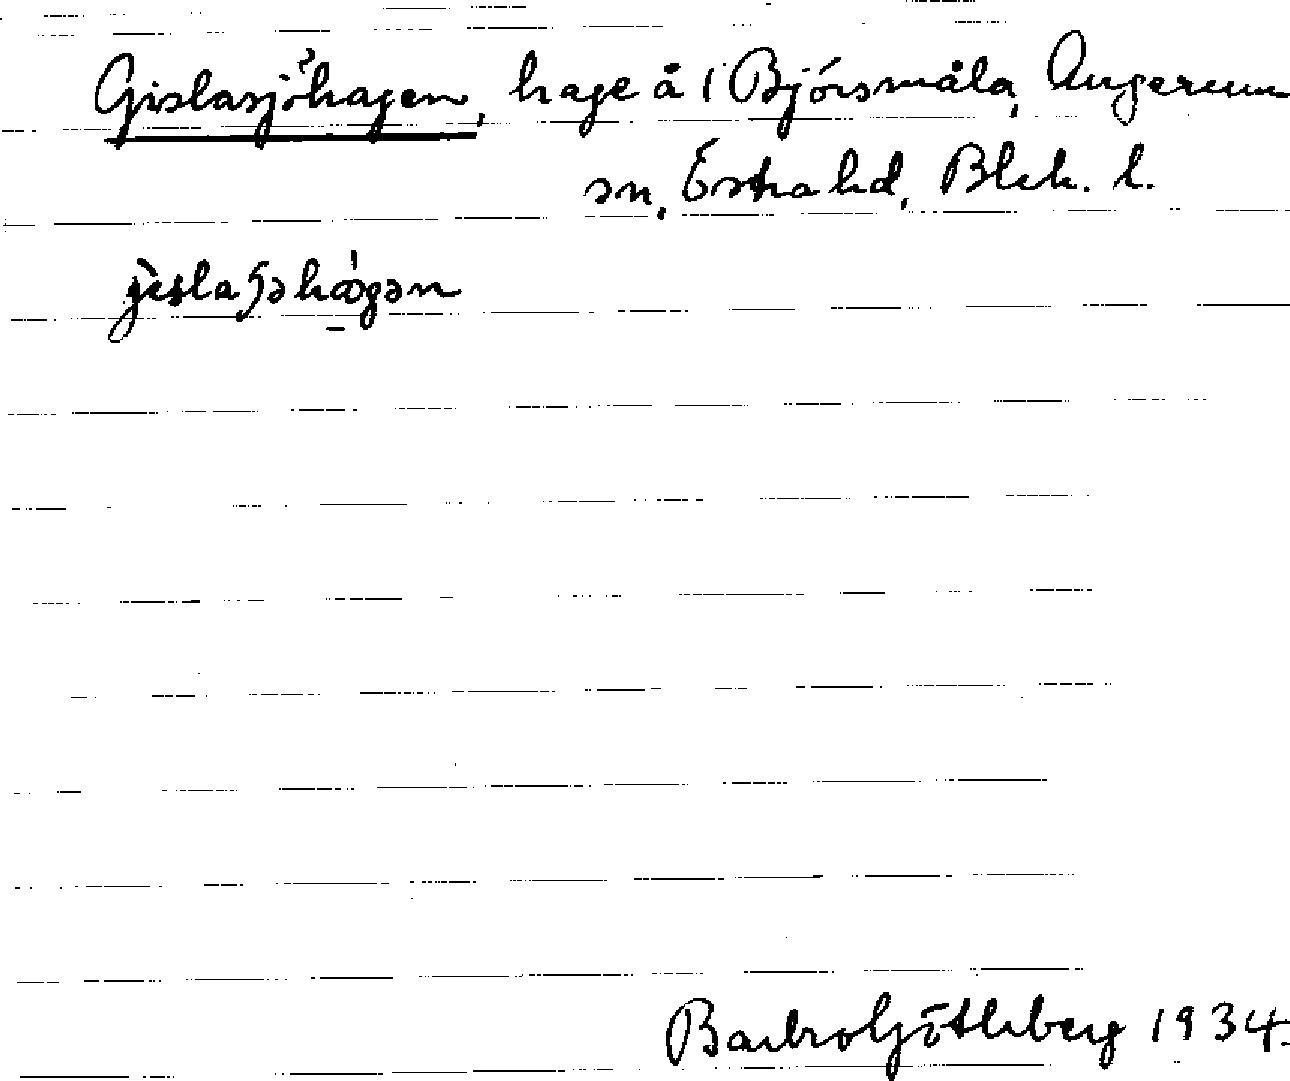 Gislasjöhagen, hage å 1 Björsmåla, Augerum
sn, Östra hd, Blek. l.
Barbro Götlberg 1934.